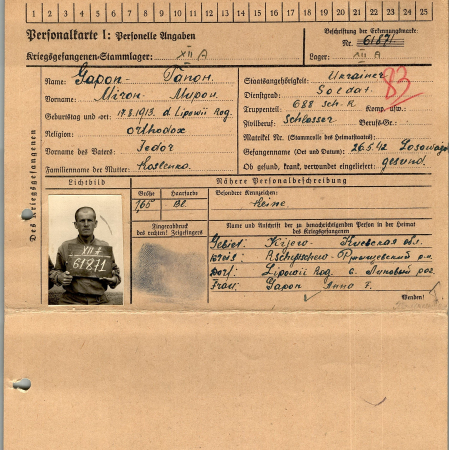 1 2 3 4 5 6 7 8 9 10 11 12 13 14 15 16 17 18 19 20 21 22 23 24 25
Personalkarte 1: Personelle Angaben
Beschriftung der Erkennungsmarke
Kriegsgefangenen-Stammlager: XII A
Nr. 61871
Lager: XII A
Des Kriegsgefangenen
Name: Gapon - Гапон.
Vorname: Miron - Мирон.
Geburtstag und -ort 17.8.1913. d. Lipowij Rog.
Religion: orthodox
Vorname des Vaters: Fedor
Familienname der Mutter: Kostenko.
Staatsangehörigkeit: Ukrainer
83
Dienstgrad: Soldat
Truppenteil: 688 sch. R. Komp. usw.
Zivilberuf: Schlosser Berufs-Gr.:
Matrikel Nr. (Stammrolle des Heimatstaates):
Gefangennahme (Ort und Datum): 26.5.42 Losowaja
Ob gesund, krank, verwundet eingeliefert: gesund.
Lichtbild
Nähere Personalbeschreibung
Größe Haarfarbe Besondere Kennzeichen:
1,65 Bl. Keine
Fingerabdruck
des rechten! Zeigefingers
Name und Anschrift der zu benachrichtigenden Person in der Heimat
des Kriegsgefangenen
XII A
61871
Gebiet: Kijew - Киевская обл.
Kreis: Ржищевский р-н
Dorf: Lipowij Rog с. Липовый рог
Frau: Gapon Anna F.
Wenden!